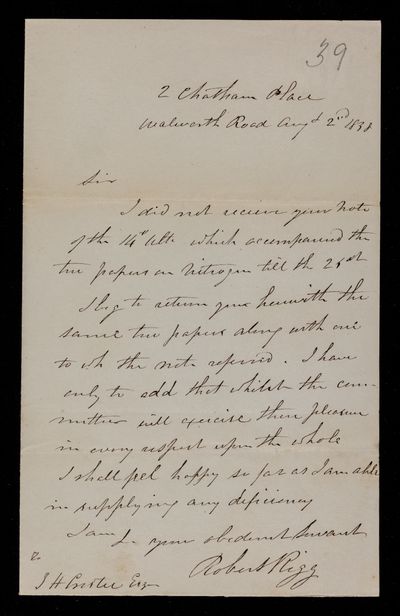 39
2 Chatham Place
Walworth Road Augt 2nd 1838
Sir
I did not receive your note
of the 14th Ulto which accompanied the
two papers on Nitrogen till the 21st
I beg to return you herewith the
same two papers along with one
to wh the note referred. I have
only to add that whilst the com-
mittee will exercise their pleasure
in every respect upon the whole
I shall feel happy so far as I am able
in supplying any deficiency
I am Sr your obedient Servant
Robert Rigg
To
J H Esq